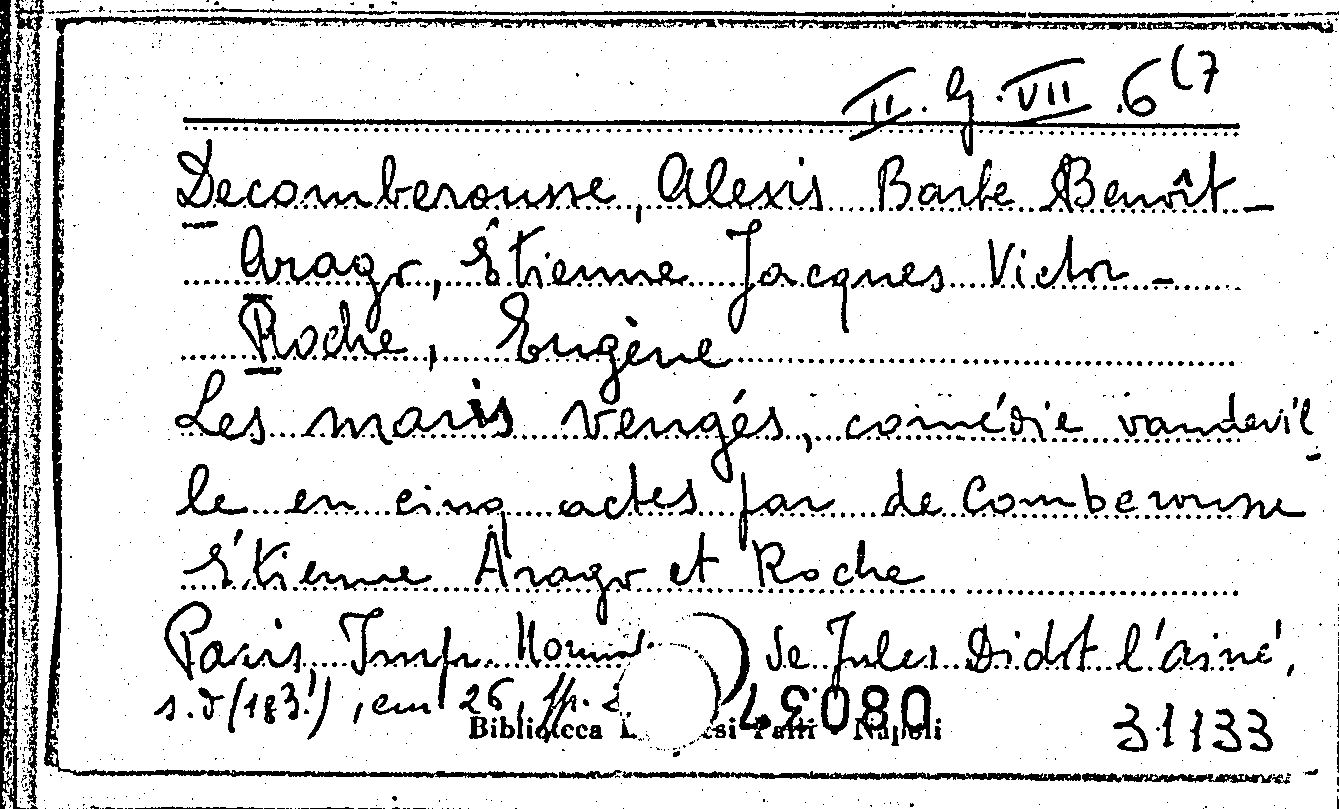 II. G. VII .6 (7
Decomberousse, Alexis Barbe Benoît -
Arago, Étienne Jacques Victor -
Roche, Eugène
Les maris vengés, comédie vaudevil-
le en cinq actes par de Comberousse
Étienne Arago et Roche
Paris, Imp. de Jules Didot l'ainé,
s.d (183.), cm 26, pp.
Biblioteca Napoli
31133